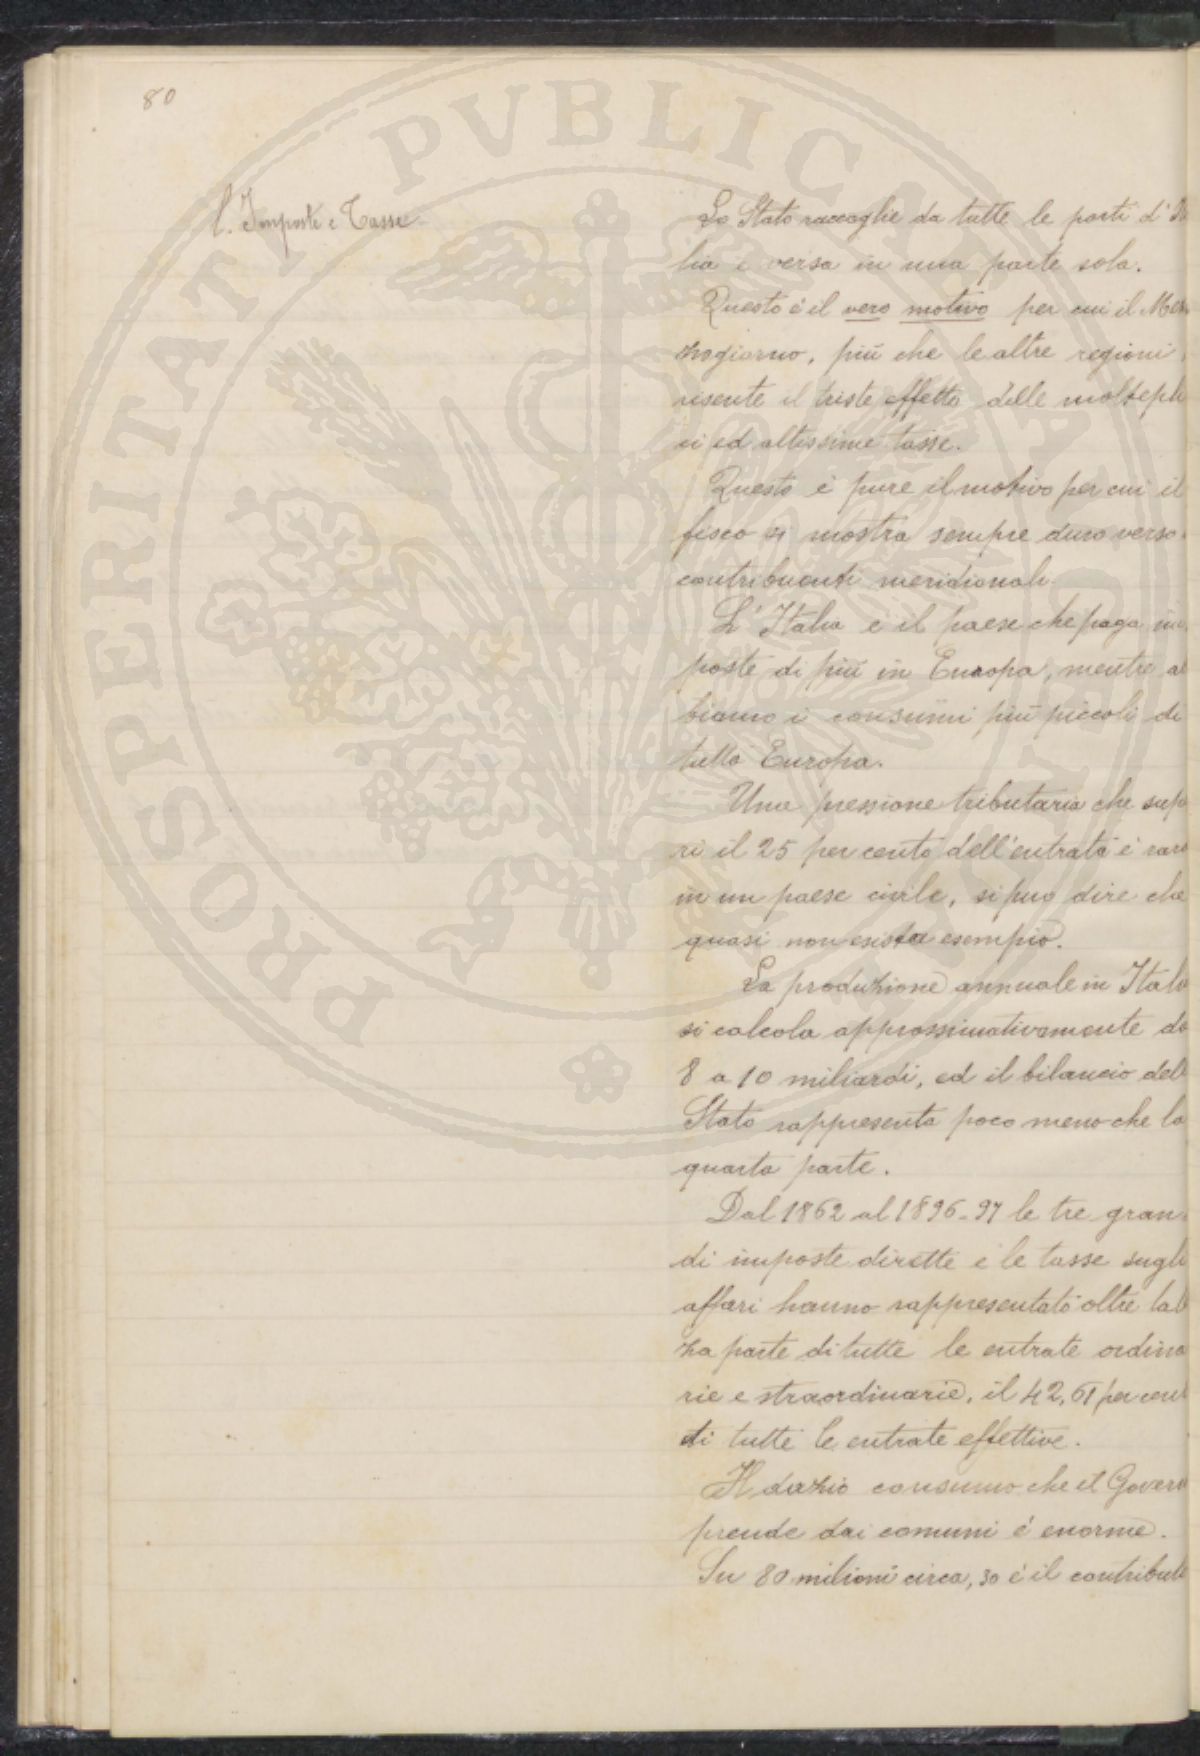 80
l. Imposte e Tasse
Lo Stato raccoglie da tutte le parti d'Ita
lia e versa in una parte sola.
Questo é il vero motivo per cui il Mez
zogiorno, più che le altre regioni,
risente il triste effetto delle moltepli
ci ed altissime tasse.
Questo é pure il motivo per cui il
fisco si mostra sempre duro verso i
contribuenti meridionali.
L'Italia é il paese che paga im
poste di più in Europa, mentre ab
biamo i consumi più piccoli di
tutta Europa.
Una pressione tributaria che supe
ri il 25 per cento dell'entrata é raro
in un paese civile, si può dire che
quasi non esista esempio.
La produzione annuale in Italia
si calcola approssimativamente da
8 a 10 miliardi, ed il bilancio dello
Stato rappresenta poco meno che la
quarta parte.
Dal 1862 al 1896-97 le tre gran
di imposte dirette e le tasse sugli
affari hanno rappresentato oltre la
za parte di tutte le entrate ordina
rie e straordinarie, il 42,61 per cento
di tutte le entrate effettive.
Il dazio consumo che il Governo
prende dai comuni é enorme.
Su 80 milioni circa, 30 é il contributo
PROSPERITATI PVBLICAE AVGENDAE